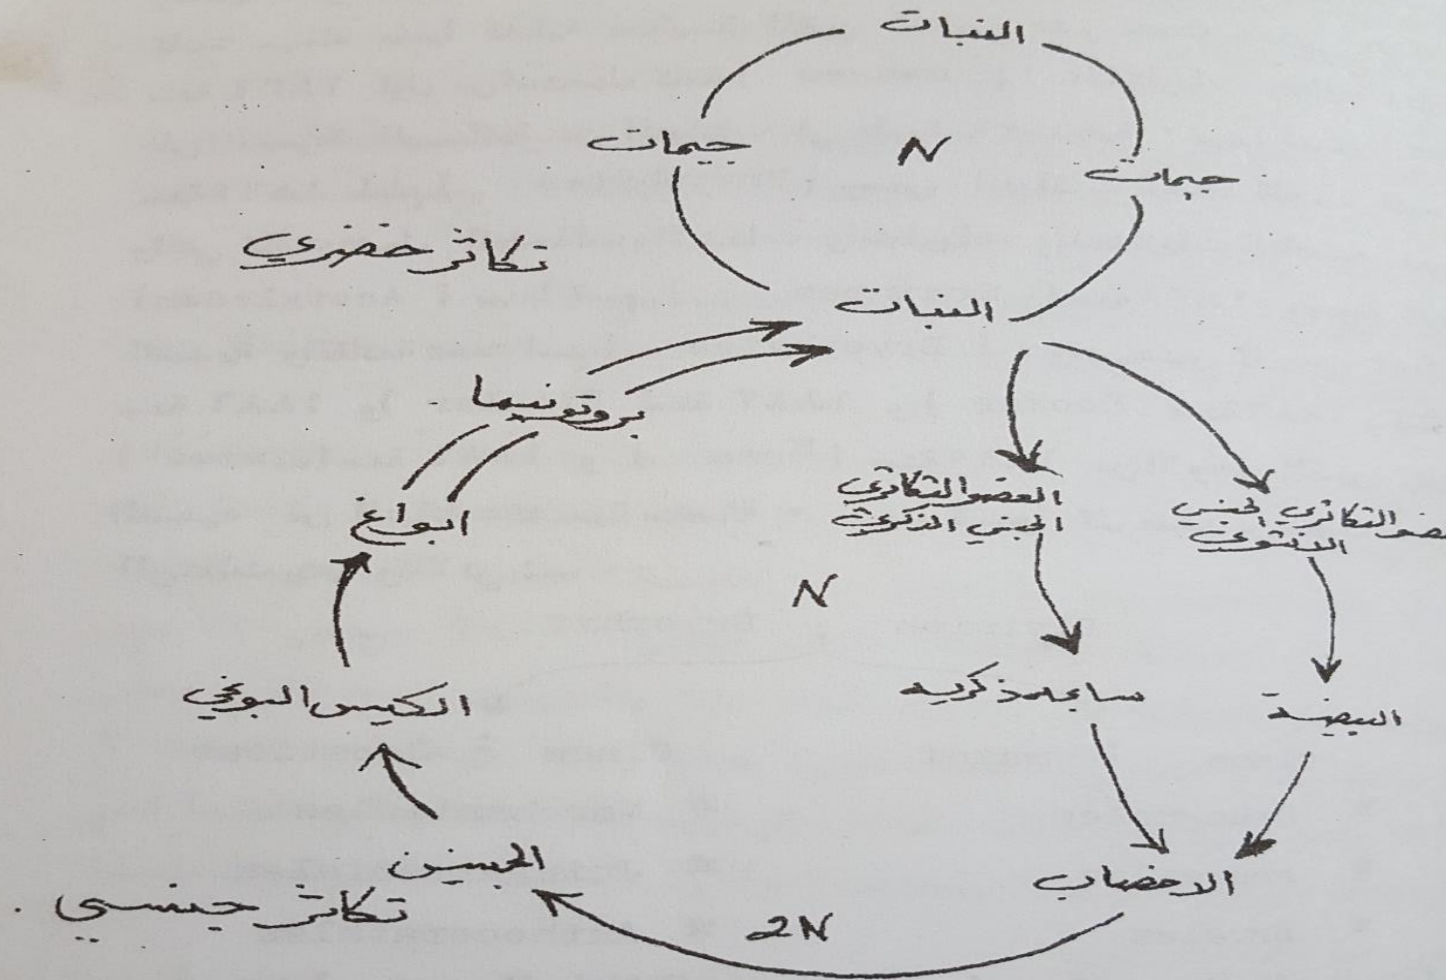 النبات
جيمات
N
جيمات
تكاثر خضري
النبات
بروتونيما
ابواغ
العضو التكاثري
الجنسي الذكري
ضو التكاثري الجنسي
الانثوي
N
الكيس البوغي
سابحه ذكريه
البيضة
الاخصاب
الجنين
تكاثر جنسي.
2N